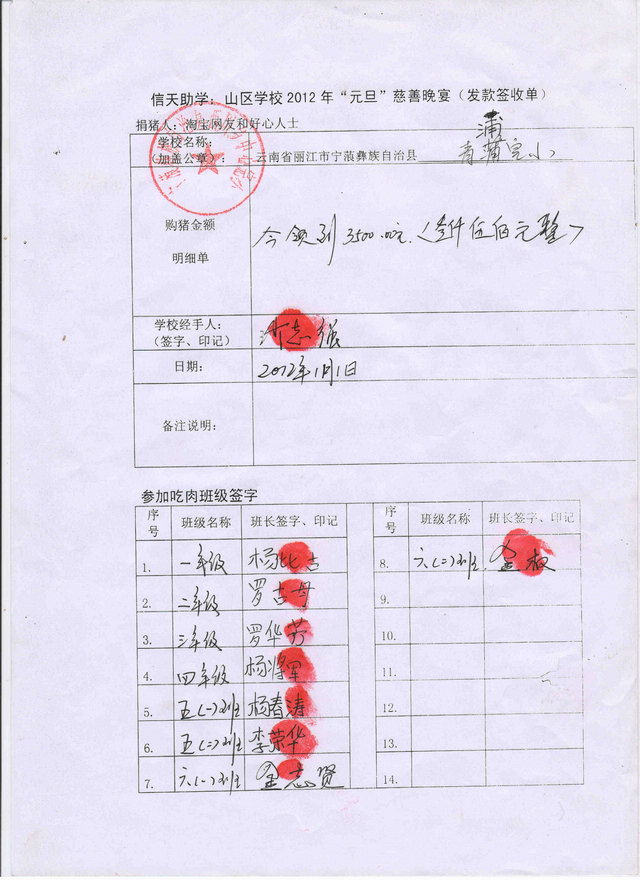 信天助学：山区学校2012年“元旦”慈善晚宴（发款签收单）
捐猪人：淘宝网友和好心人士
蒲
学校名称：
加盖公章）： 云南省丽江市宁蒗彝族自治县 青蒲完小
购猪金额
明细单
今领到3500.00元（叁仟伍佰元整）
学校经手人：
（签字、印记） 志强
日期： 2012年1月1日
备注说明：
参加吃肉班级签字
序号 班级名称 班长签字、印记
1. 一年级 杨比古
2. 二年级 罗古母
3. 三年级 罗华芳
4. 四年级 杨将军
5. 五（一）班 杨春涛
6. 五（二）班 李荣华
7. 六（一）班 金志贤
序号 班级名称 班长签字、印记
8. 六（二）班 金权
9.
10.
11.
12.
13.
14.